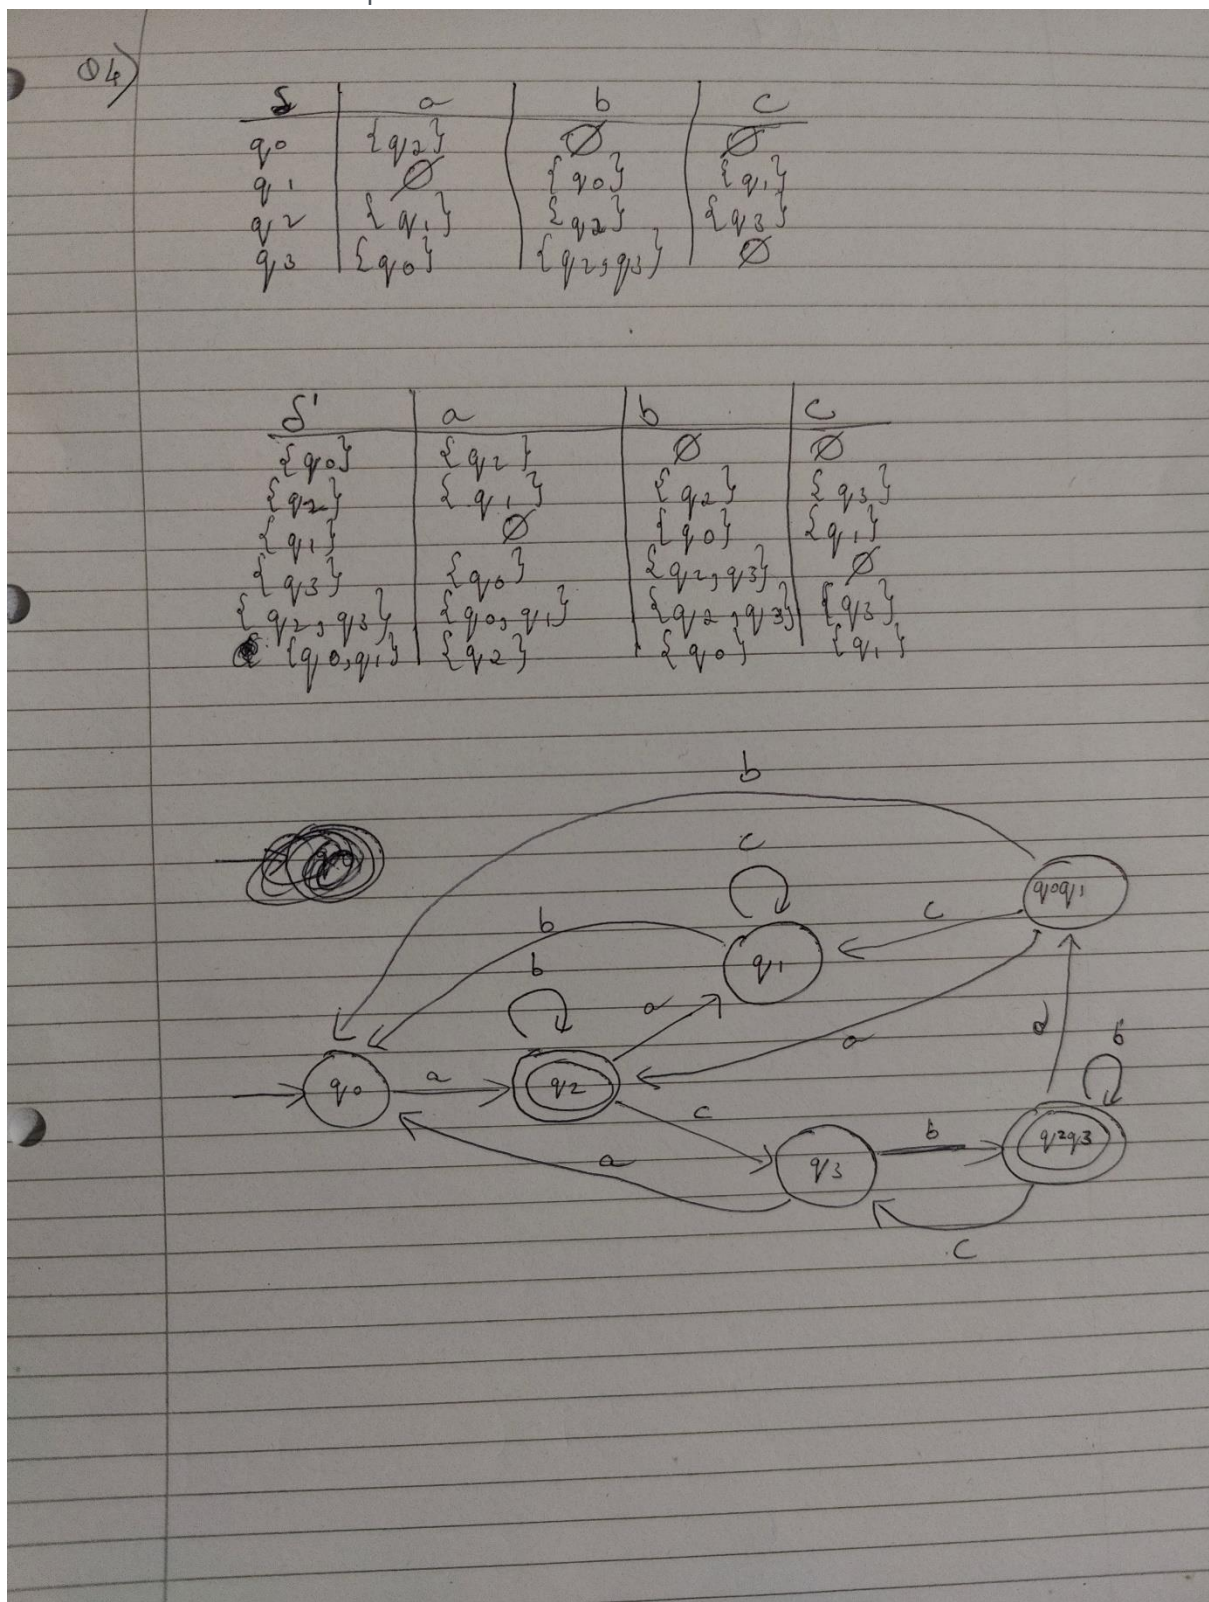 Q4)
δ a b c
q0 {q2} ∅ ∅
q1 ∅ {q0} {q1}
q2 {q1} {q2} {q3}
q3 {q0} {q2,q3} ∅
δ' a b c
{q0} {q2} ∅ ∅
{q2} {q1} {q2} {q3}
{q1} ∅ {q0} {q1}
{q3} {q0} {q2,q3} ∅
{q2,q3} {q0,q1} {q2,q3} {q3}
{q0,q1} {q2} {q0} {q1}
b
c
q0q1
b
c
b
q1
a
a
a
b
q0
a
q2
c
b
q2q3
a
q3
c